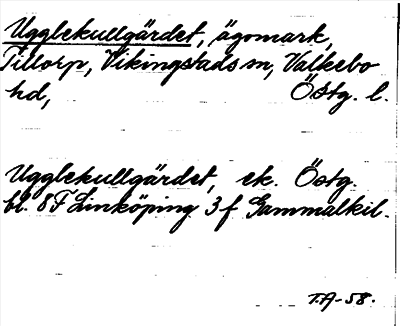 Ugglekullgärdet, ägomark,
Tillorp, Vikingstads sn, Valkebo
hd, Östg. l.
Ugglekullgärdet, ek. Östg.
bl. 8F Linköping 3f Gammalkil.
T.A-58.